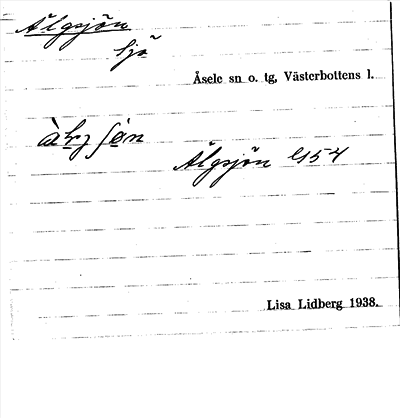 Älgsjön
sjö
Åsele sn o. tg, Västerbottens l.
Älgsjön G154
Lisa Lidberg 1938.